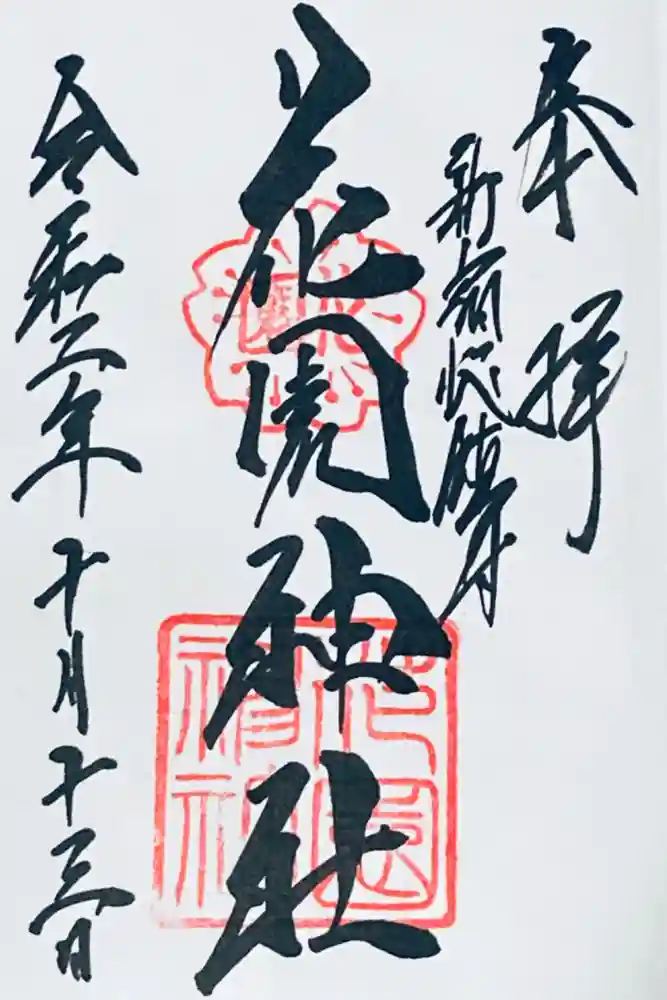 奉拝
新宿総鎮守
花園神社
令和二年十月十三日
花園
花園神社